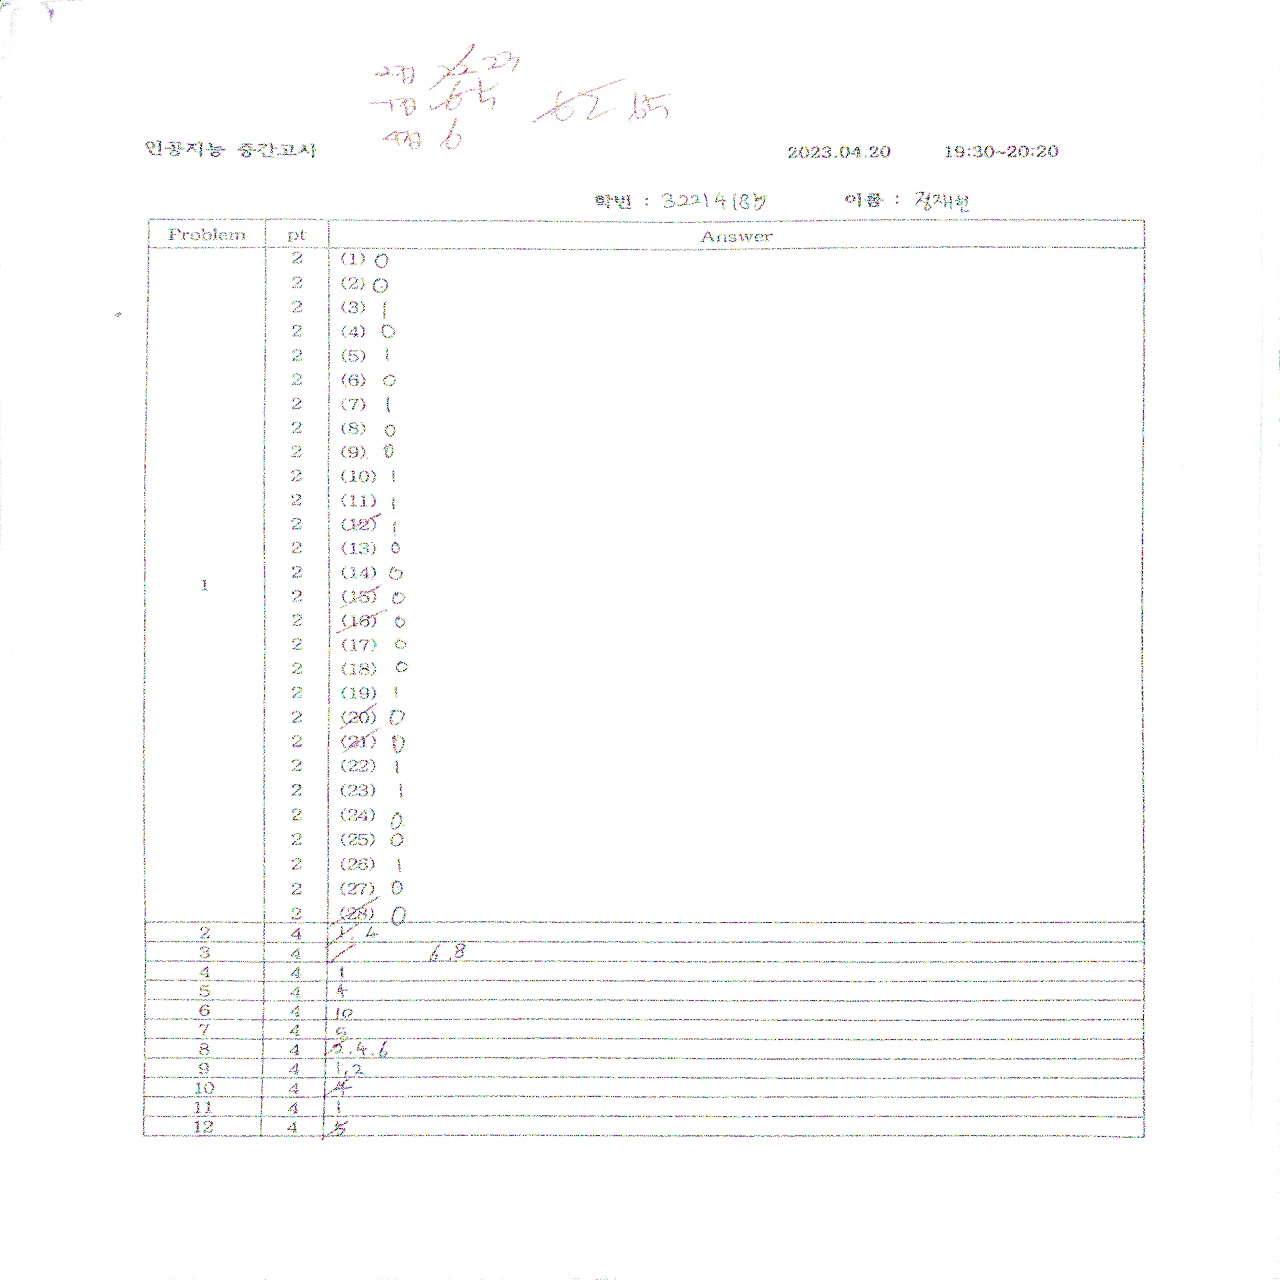 2점 22
4점 6
인공지능 중간고사 2023.04.20 19:30~20:20
학번 : 이름 : 정재원
Problem pt Answer
1
2 (1) 0
2 (2) 0
2 (3) 1
2 (4) 0
2 (5) 1
2 (6) 0
2 (7) 1
2 (8) 0
2 (9) 0
2 (10) 1
2 (11) 1
2 (12) 1
2 (13) 0
2 (14) 0
2 (15) 0
2 (16) 0
2 (17) 0
2 (18) 0
2 (19) 1
2 (20) 0
2 (21) 0
2 (22) 1
2 (23) 1
2 (24) 0
2 (25) 0
2 (26) 1
2 (27) 0
2 (28) 0
2 4 1, 4
3 4 6.8
4 4 1
5 4 4
6 4 10
7 4 5
8 4 2.4.6
9 4 1,2
10 4 4
11 4 1
12 4 5